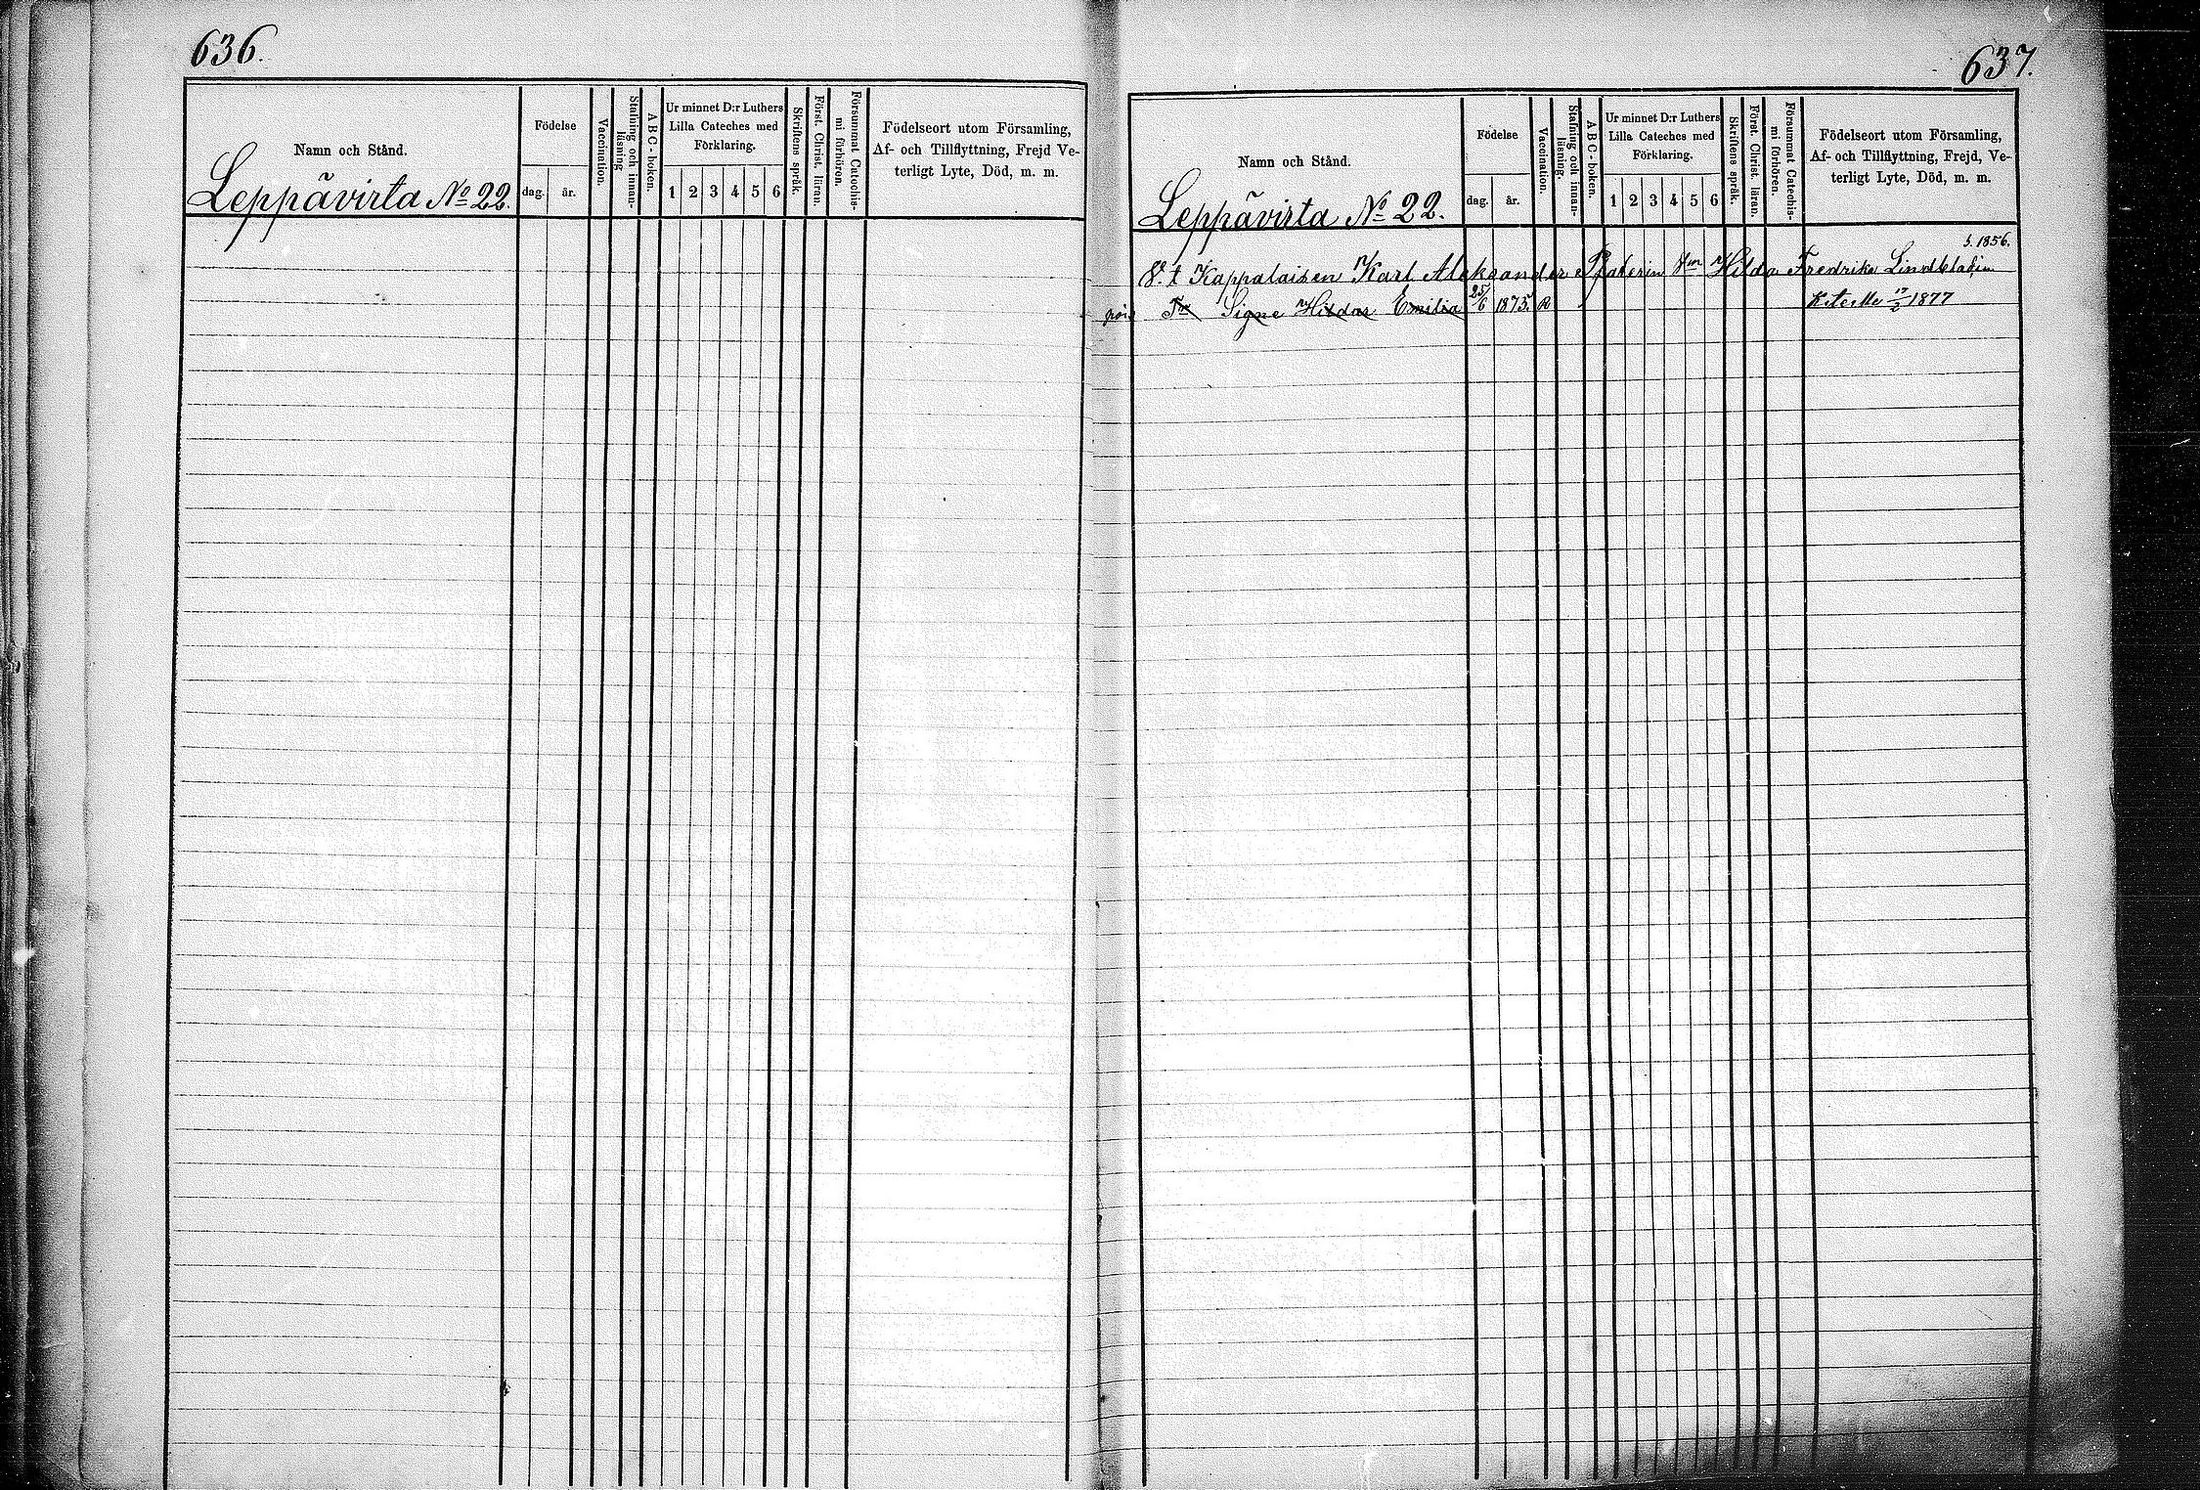 636.
Namn och Stånd.
Leppävirta No 22.
Födelse
dag.
år.
Vaccination.
Stafning och innan-
läsning
ABC-boken.
Ur minnet D:r Luthers
Lilla Cateches med
Förklaring.
1 2 3 4 5 6
Skriftens språk.
Först. Christ. läran.
Försummat Catechis-
mi förhören.
Födelseort utom Församling,
Af- och Tillflyttning, Frejd Ve-
terligt Lyte, Död, m. m.
637.
Namn och Stånd.
Leppävirta No 22.
Födelse
dag.
år.
Vaccination.
Stafning och innan-
läsning.
ABC-boken.
Ur minnet D:r Luthers
Lilla Cateches med
Förklaring.
1 2 3 4 5 6
Skriftens språk.
Först. Christ. läran.
Försummat Catechis-
mi förhören.
Födelseort utom Församling,
Af- och Tillflyttning, Frejd, Ve-
terligt Lyte, Död, m. m.
1856.
V. t Kappalaisen Karl Aleksander Hilda Fredrika
Signe Hilda Emilia 25/6 1875. R 17/2 1877